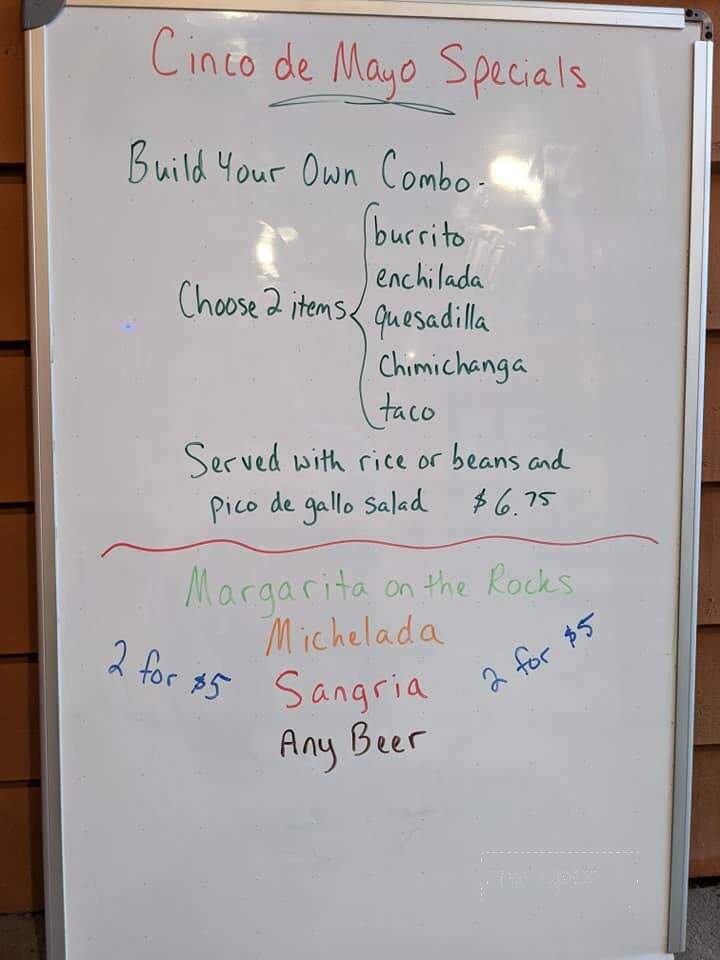 Cinco de Mayo Specials
Build Your Own Combo-
Choose 2 items
burrito
enchilada
quesadilla
Chimichanga
taco
Served with rice or beans and
pico de gallo salad $6.75
Margarita on the Rocks
Michelada
2 for $5
Sangria
2 for $5
Any Beer